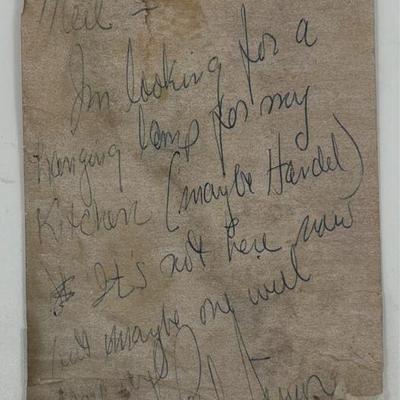 I'm looking for a
hanging lamp for my
Kitchen (maybe Handel)
It's not here now
but maybe one will